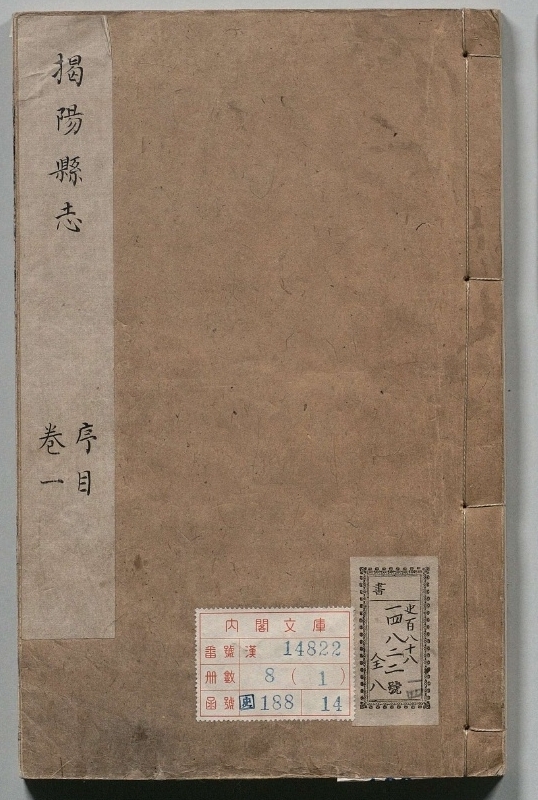 揭陽縣志
序目
卷一
內閣文庫
番號 漢 14822
册數 8(1)
函號 史 188 14
書
史百八十八
一四八二二號
全八